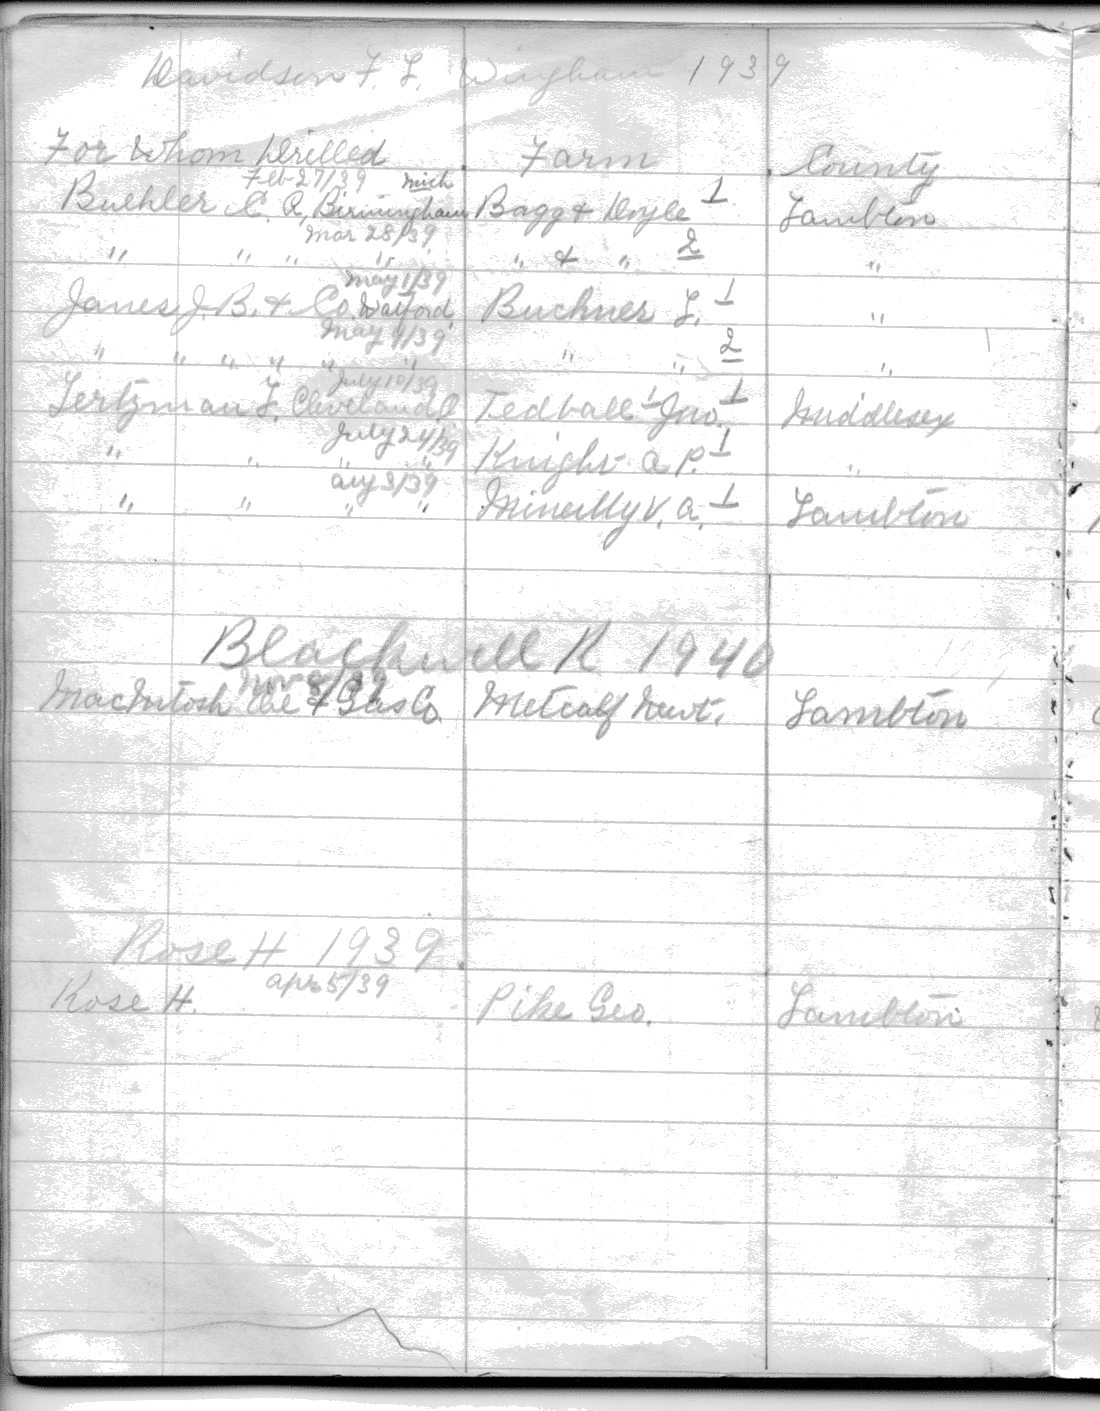 Davidson F. L. Wingham 1939
For Whom Drilled Farm County
Feb 27/39 Mich
Buehler C. A, Birmingham Bagg & Doyle 1 Lambton
Mar 28/39
" " " " " & " 2 "
May 1/39
Janes J. B. & Co. Watford, Buchner L. 1 "
May 9/39
" " " " " " " " 2 "
July 10/39
Lertzman F. Cleveland, O Tedball Jno. 1 Middlesex
July 24/39
" " " " Knight A P. 1 "
Aug 3/39
" " " " Minielly V. A. 1 Lambton
Blackwell R 1940
Nov
MacIntosh Oil & Gas Co. Metcalf Newt. Lambton
Rose H 1939
Apr 5/39
Rose H. Pike Geo. Lambton